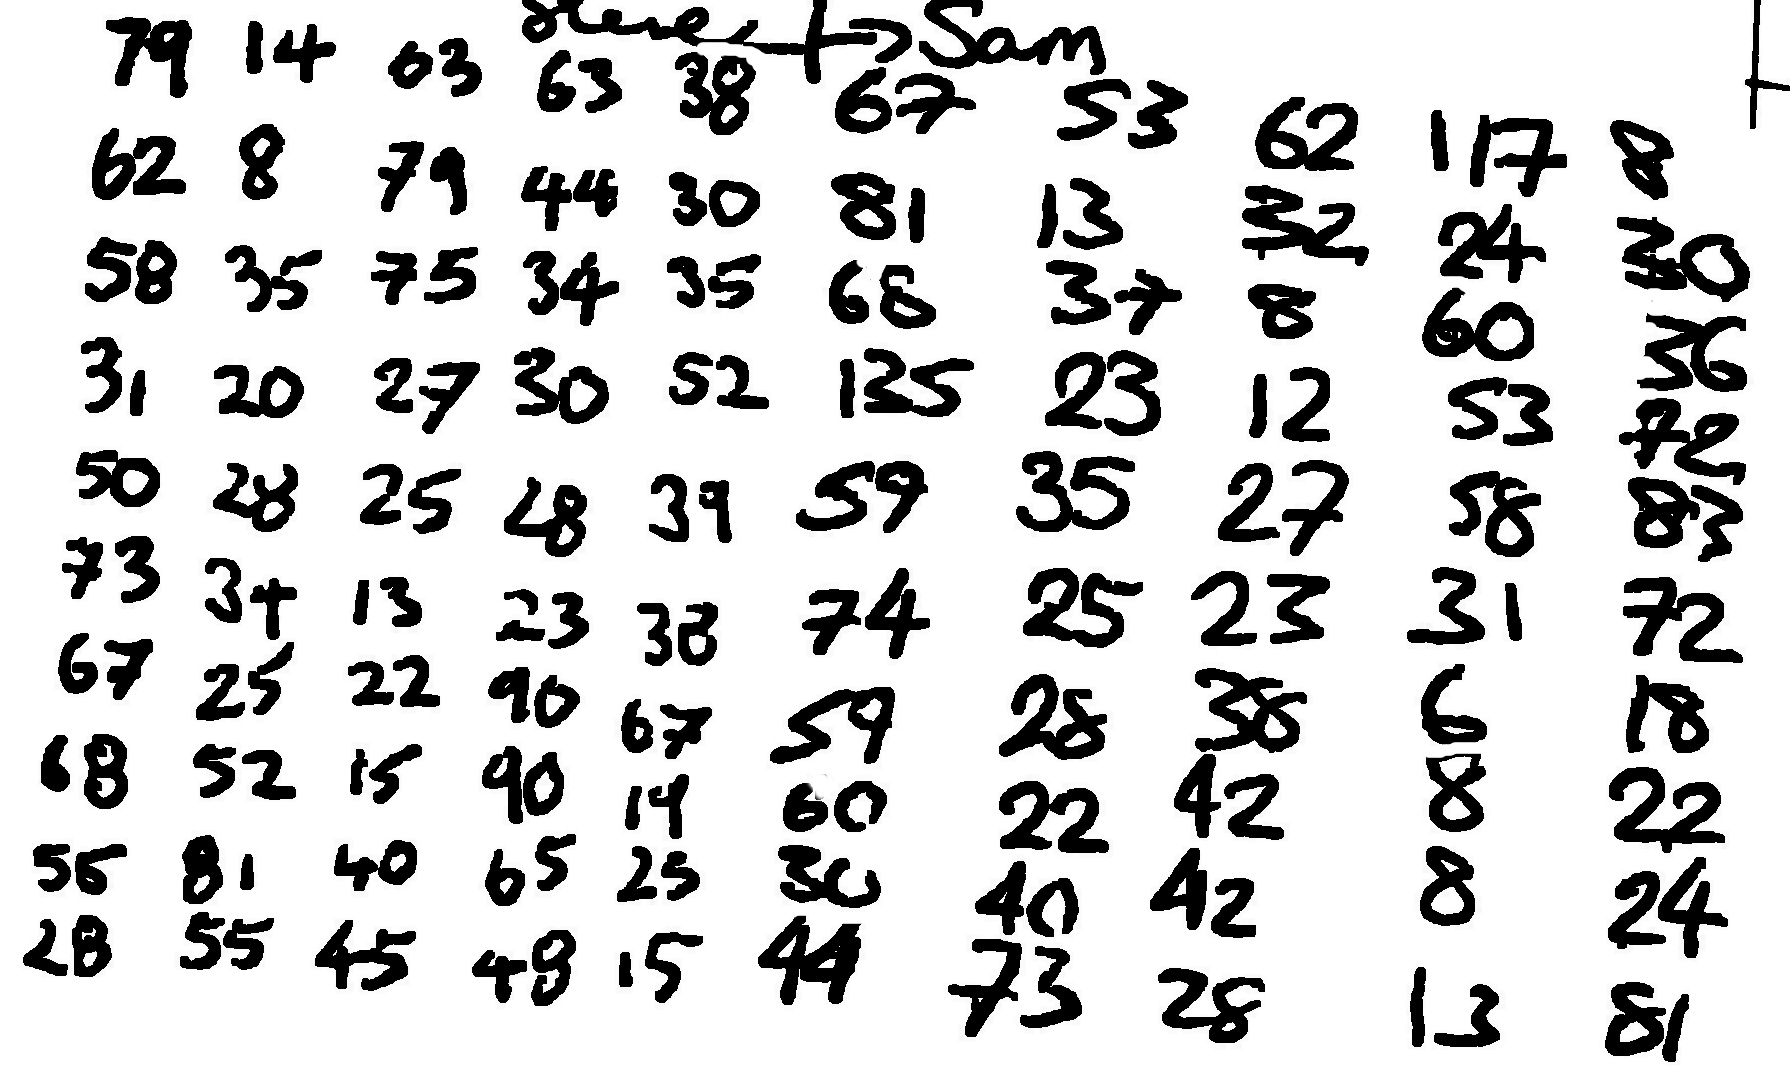 Steve → Sam
79 14 63 63 38 67 53 62 117 8
62 8 79 44 30 81 13 32 24 30
58 35 75 34 35 68 37 8 60 36
31 20 27 30 52 135 23 12 53 72
50 28 25 28 39 59 35 27 58 83
73 34 13 23 38 74 25 23 31 72
67 25 22 90 67 59 28 38 6 18
68 52 15 90 14 60 22 42 8 22
56 81 40 65 25 30 40 42 8 24
28 55 45 48 15 44 73 28 13 81